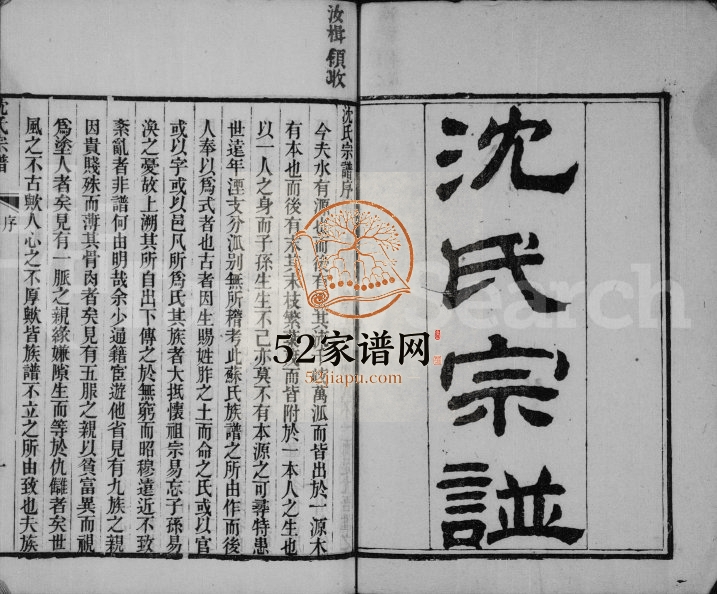 沈氏宗譜
汝楫領收
沈氏宗譜序
今夫水有源也而後有其萬派而皆出於一源木
有本也而後有末其末枝繁而皆附於一本人之生也
以一人之身而子孫生生不已亦莫不有本源之可尋特患
世遠年湮支分派别無所稽考此蘇氏族譜之所由作而後
人奉以爲式者也古者因生賜姓胙之土而命之氏或以官
或以字或以邑凡所爲氏其族者大抵懷祖宗易忘子孫易
渙之憂故上溯其所自出下傳之於無窮而昭穆遠近不致
紊亂者非譜何由明哉余少通籍宦遊他省見有九族之親
因貴賤殊而薄其骨肉者矣見有五服之親以貧富異而視
爲塗人者矣見有一脈之親緣嫌隙生而等於仇讎者矣世
風之不古歟人心之不厚歟皆族譜不立之所由致也夫族
沈氏宗譜
序
一
52家谱网
52jiapu.com
Search